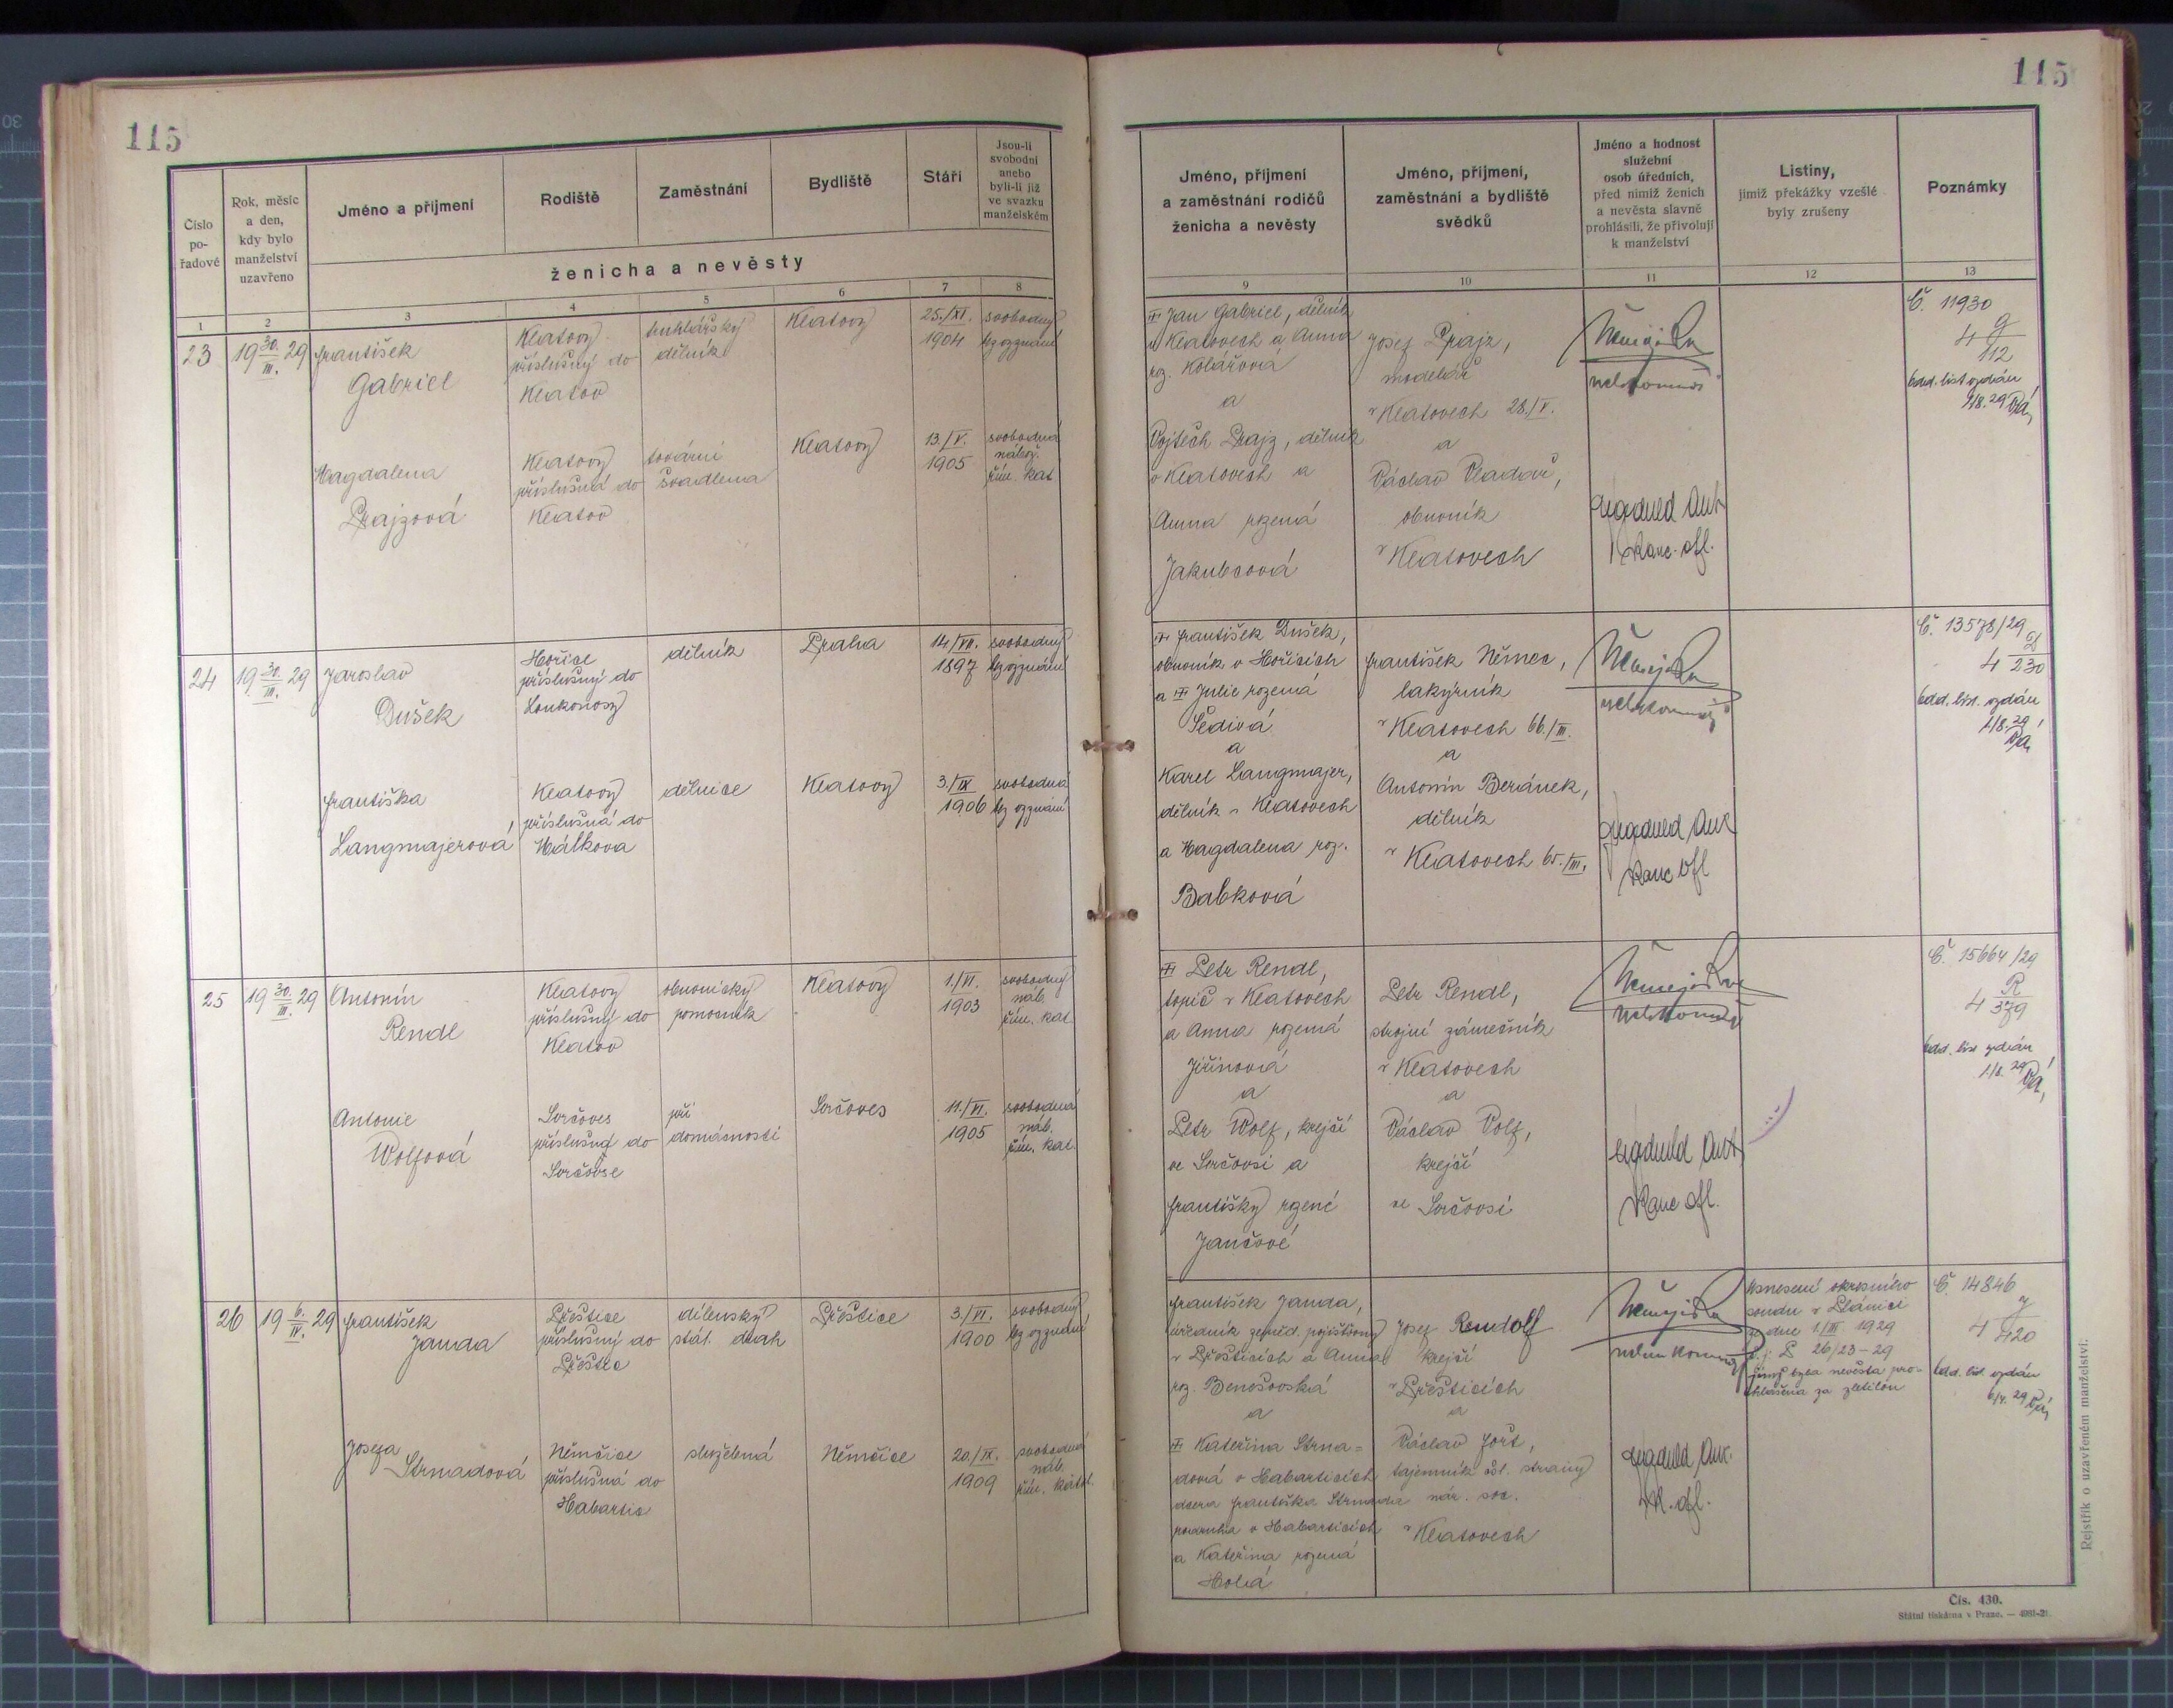 115
115
Číslo
po-
řadové
Rok, měsíc
a den,
kdy bylo
manželství
uzavřeno
Jméno a příjmení
Rodiště
Zaměstnání
Bydliště
Stáří
Jsou-li
svobodni
anebo
byli-li již
ve svazku
manželském
ženicha a nevěsty
1
2
3
4
5
6
7
8
23
19 30./III. 29
František
Gabriel
Klatovy
příslušný do
Klatov
truhlářský
dělník
Klatovy
25./XI.
1904
svobodný
bez vyznání
Magdalena
Prajzová
Klatovy
příslušná do
Klatov
tovární
švadlena
Klatovy
13./V.
1905
svobodná
nábož.
řím. kat
24
19 30./III. 29
Jaroslav
Dušek
Hořice
příslušný do
Loukonosy
dělník
Praha
14/VII.
1897
svobodný
bez vyznání
Františka
Langmajerová
Klatovy
příslušná do
Málkova
dělnice
Klatovy
3./IX
1906
svobodná
bez vyznání
25
19 30./III. 29
Antonín
Rendl
Klatovy
příslušný do
Klatov
obuvnický
pomocník
Klatovy
1./VI.
1903
svobodný
náb.
řím. kat.
Antonie
Wolfová
Svrčoves
příslušná do
Svrčovse
při
domácnosti
Svrčoves
11./VI.
1905
svobodná
náb.
řím. kat.
26
19 6./IV. 29
František
Janda
Přeštice
příslušný do
Přeštic
dílenský
stát. drah
Přeštice
3./VI.
1900
svobodný
bez vyznání
Josefa
Strnadová
Němčice
příslušná do
Habartic
služebná
Němčice
20./IX.
1909
svobodná
náb.
řím. katol.
Jméno, příjmení
a zaměstnání rodičů
ženicha a nevěsty
Jméno, příjmení,
zaměstnání a bydliště
svědků
Jméno a hodnost
služební
osob úředních,
před nimiž ženich
a nevěsta slavně
prohlásili, že přivolují
k manželství
Listiny,
jimiž překážky vzešlé
byly zrušeny
Poznámky
9
10
11
12
13
Jan Gabriel, dělník
v Klatovech a Anna
roz. Kolářová
a
Vojtěch Prajz, dělník
v Klatovech a
Anna rozená
Jakubcová
Josef Prajz,
modelář
v Klatovech 28./V.
a
Václav Vladař,
obuvník
v Klatovech
Kanc. ofl.
Č. 11930
4 G/112
odd. list vydán
4/8. 29
František Dušek,
obuvník v Hořicích
a Julie rozená
Šedivá
a
Karel Langmajer,
dělník v Klatovech
a Magdalena roz.
Babková
František Němec,
lakýrník
v Klatovech 66./III.
a
Antonín Beránek,
dělník
v Klatovech 65./III.
Kanc ofl
Č. 13578/29
4 D/230
odd. list. vydán
4/8. 29
Petr Rendl,
topič v Klatovech
a Anna rozená
Jiřinová
a
Petr Wolf, krejčí
ve Svrčovsi a
Františky rozené
Jančové
Petr Rendl,
strojní zámečník
v Klatovech
a
Václav Volf,
krejčí
ve Svrčovsi
Kanc ofl.
Č. 15664/29
4 R/379
odd. list vydán
František Janda,
úředník zeměd. pojišťovny
v Přešticích a Anna
roz. Benešovská
a
Kateřina Strna=
dová v Habarticích
dcera Františka Strnada
podruha v Habarticích
a Kateřina rozená
Holá
Josef Rendolf
krejčí
v Přešticích
a
Václav Jošt,
tajemník čsl. strany
nár. soc.
v Klatovech
K. ofl.
Usnesení okresního
soudu v Plánici
ze dne 1/III 1929
č. j. P 26/23-29
jímž byla nevěsta pro-
hlášena za zletilou
Č. 14846
4 J/420
odd. list. vydán
Rejstřík o uzavřeném manželství.
Čís. 430.
Státní tiskárna v Praze. — 4981-21.